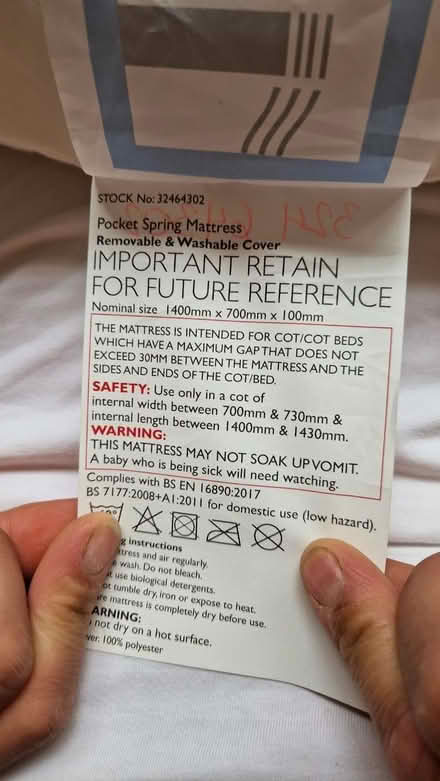 STOCK No: 32464302
Pocket Spring Mattress
Removable & Washable Cover
IMPORTANT RETAIN
FOR FUTURE REFERENCE
Nominal size 1400mm x 700mm x 100mm
THE MATTRESS IS INTENDED FOR COT/COT BEDS
WHICH HAVE A MAXIMUM GAP THAT DOES NOT
EXCEED 30MM BETWEEN THE MATTRESS AND THE
SIDES AND ENDS OF THE COT/BED.
SAFETY: Use only in a cot of
internal width between 700mm & 730mm &
internal length between 1400mm & 1430mm.
WARNING:
THIS MATTRESS MAY NOT SOAK UP VOMIT.
A baby who is being sick will need watching.
Complies with BS EN 16890:2017
BS 7177:2008+A1:2011 for domestic use (low hazard).
instructions
and air regularly.
wash. Do not bleach.
use biological detergents.
tumble dry, iron or expose to heat.
mattress is completely dry before use.
ARNING:
not dry on a hot surface.
100% polyester